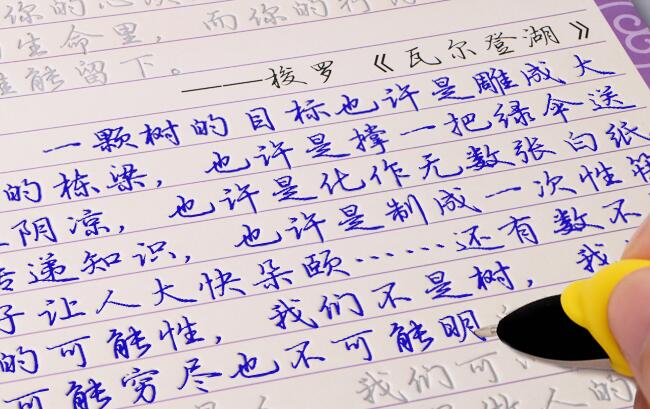 而你的
生命里，
能留下。
——梭罗《瓦尔登湖》
一颗树的目标也许是雕成大
的栋梁，也许是撑一把绿伞送
阴凉，也许是化作无数张白纸
递知识，也许是制成一次性筷
子让人大快朵颐……还有数不
的可能性，我们不是树，我
可能穷尽也不可能明
我们可
些人的